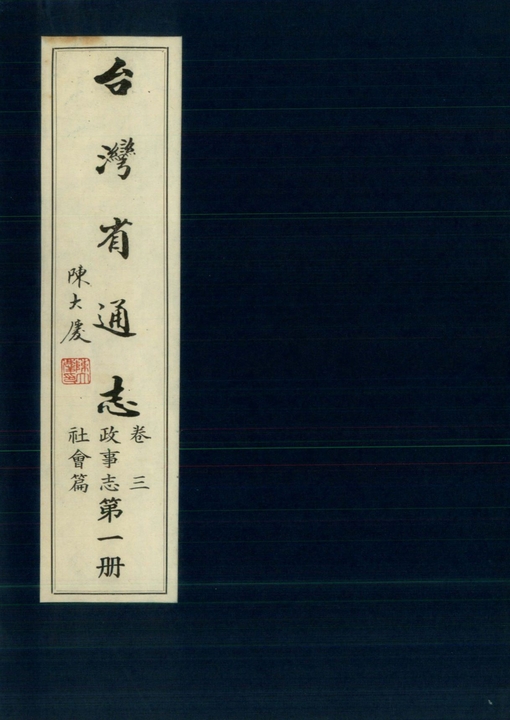 台灣省通志
卷三
政事志
社會篇
第一册
陳大慶